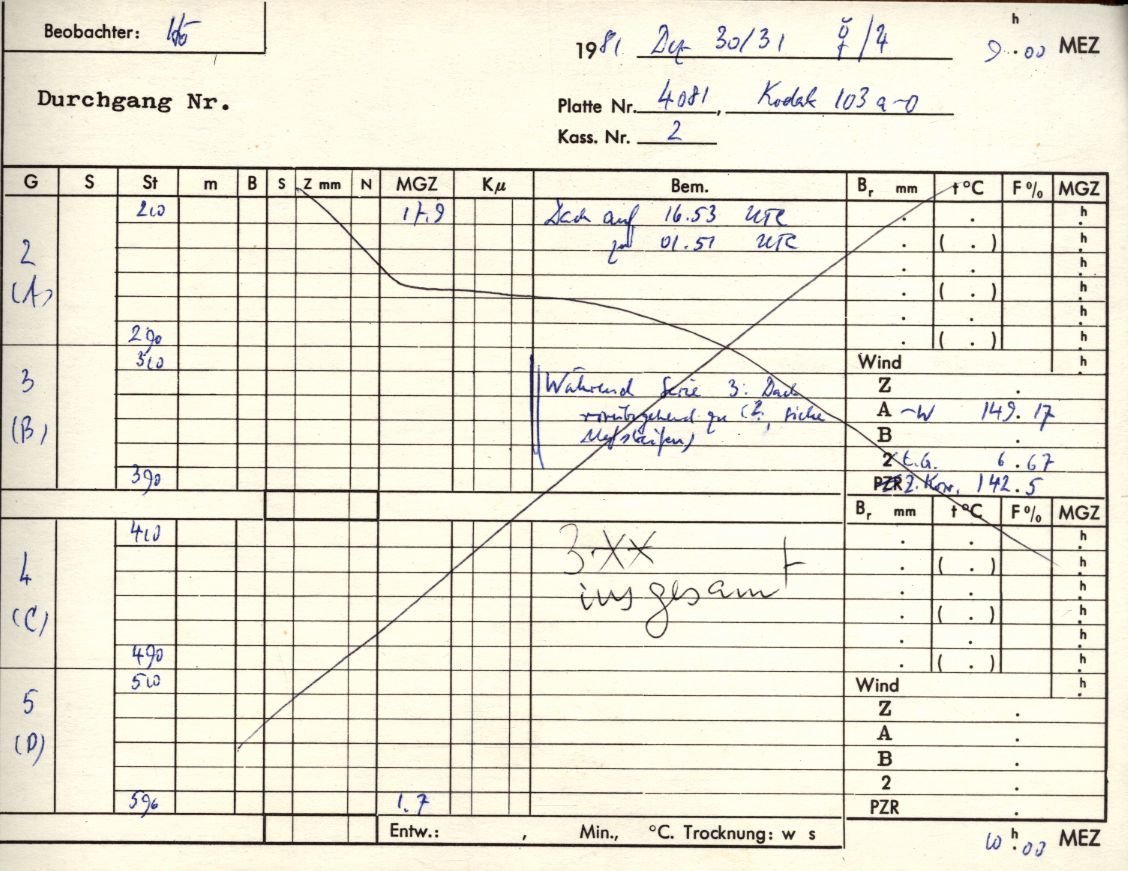 Beobachter:
1981 Dez 30/31 ☿/♃ 9 h . 00 MEZ
Durchgang Nr.
Platte Nr. 4081, Kodak 103 a-O
Kass. Nr. 2
G S St m B S Z mm N MGZ Kμ Bem. Br mm t°C F% MGZ
210 17.9 Dach auf 16.53 UTC . . h
2 zu 01.51 UTC . ( . ) h
(A) . . h
. ( . ) h
. . h
290 . ( . ) h
310 Wind h
3 Während Serie 3: Dach Z .
vorübergehend zu (?, siehe A ~W 149.17
(B) B .
2 t.G. 6.67
390 PZR Z.Korr. 142.5
Br mm t°C F% MGZ
410 3 XX . . h
4 insgesamt . ( . ) h
. . h
(C) . ( . ) h
. . h
490 . ( . ) h
510 Wind h
5 Z .
A .
(D) B .
2 .
590 1.7 PZR .
Entw.: , Min., °C. Trocknung: w s
10 h . 00 MEZ